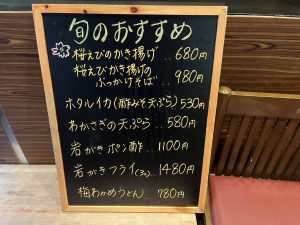 旬のおすすめ
桜えびのかき揚げ 680円
桜えびかき揚げの
ぶっかけそば 980円
ホタルイカ(酢みそ天ぷら) 530円
わかさぎの天ぷら 580円
岩がきポン酢 1100円
岩がきフライ(3ヶ) 1480円
梅わかめうどん 780円